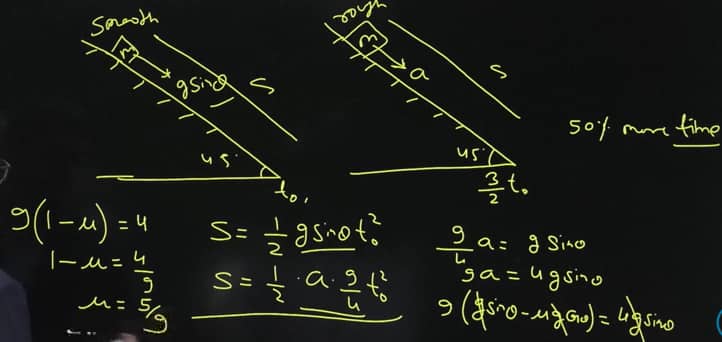 smooth
m
gsinθ
S
45°
t₀,
rough
m
a
S
45°
3/2 t₀
50% more time
9(1-μ) = 4
1-μ = 4/9
μ = 5/9
S = 1/2 gsinθ t₀²
S = 1/2 · a · 9/4 t₀²
9/4 a = g sinθ
9a = 4gsinθ
9(gsinθ-μgcosθ) = 4gsinθ